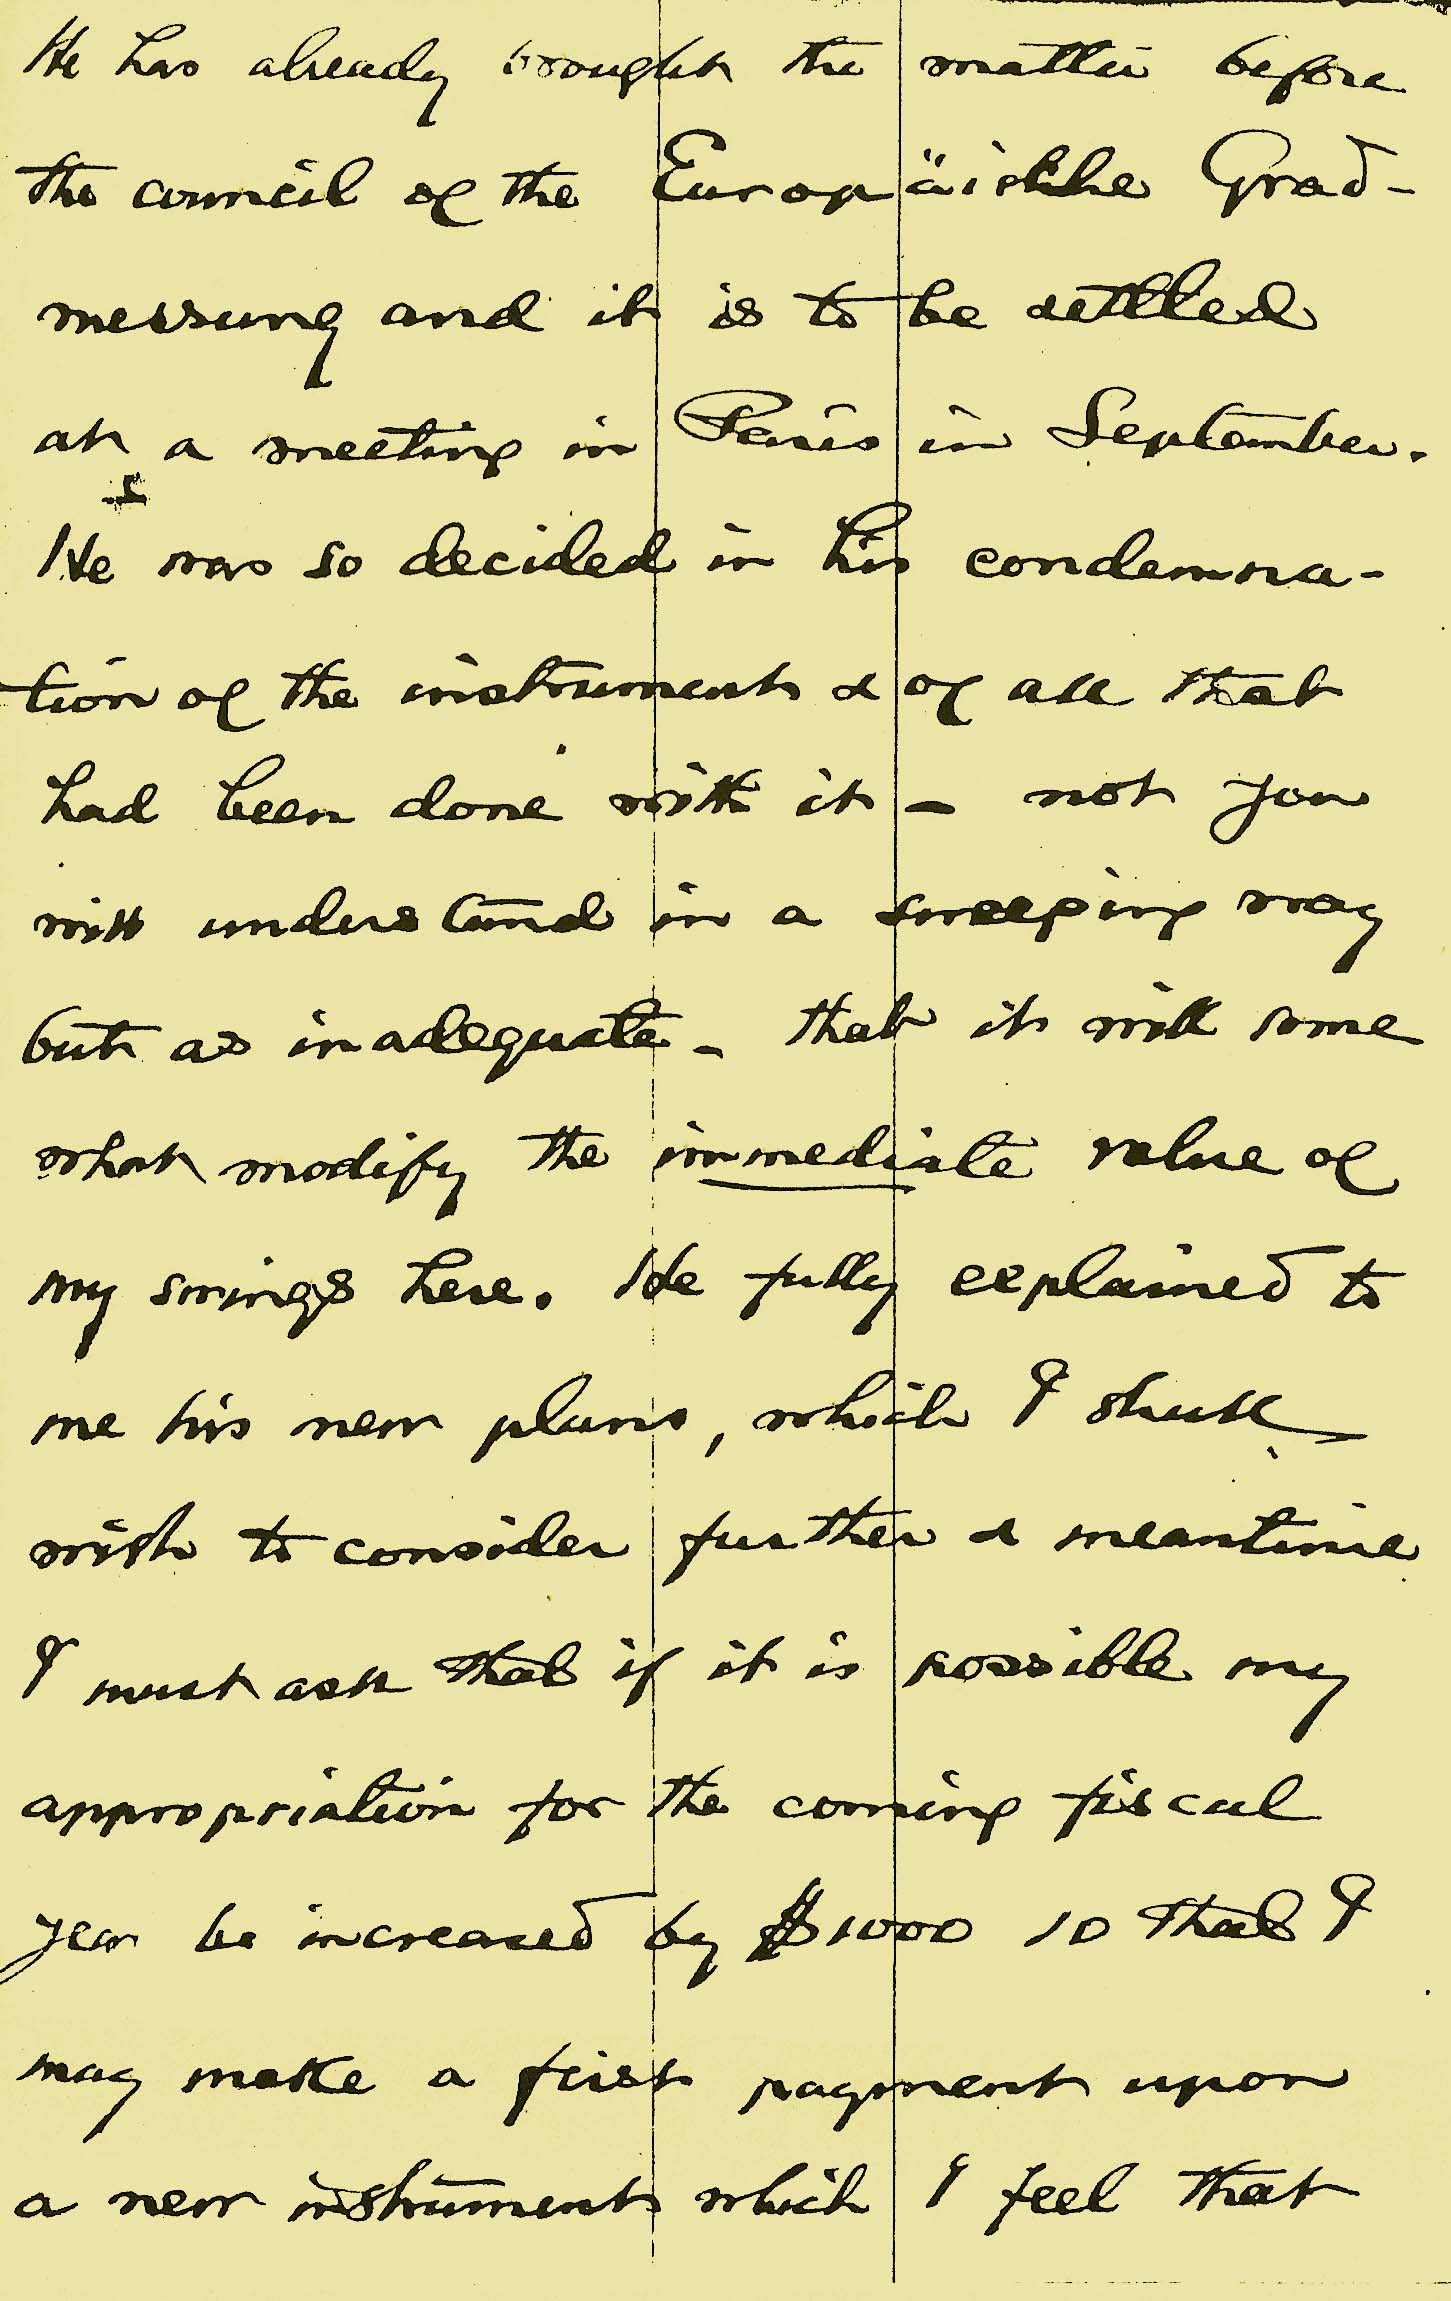 He has already brought the matter before
the council of the Europäische Grad-
messung and it is to be settled
at a meeting in Paris in September.
He was so decided in his condemna-
tion of the instrument & of all that
had been done with it – not you
will understand in a sweeping way
but as inadequate – that it will some
what modify the immediate value of
my swings here. He fully explained to
me his new plans, which I shall
wish to consider further & meantime
I must ask that if it is possible my
appropriation for the coming fiscal
year be increased by $1000 so that I
may make a first payment upon
a new instrument which I feel that